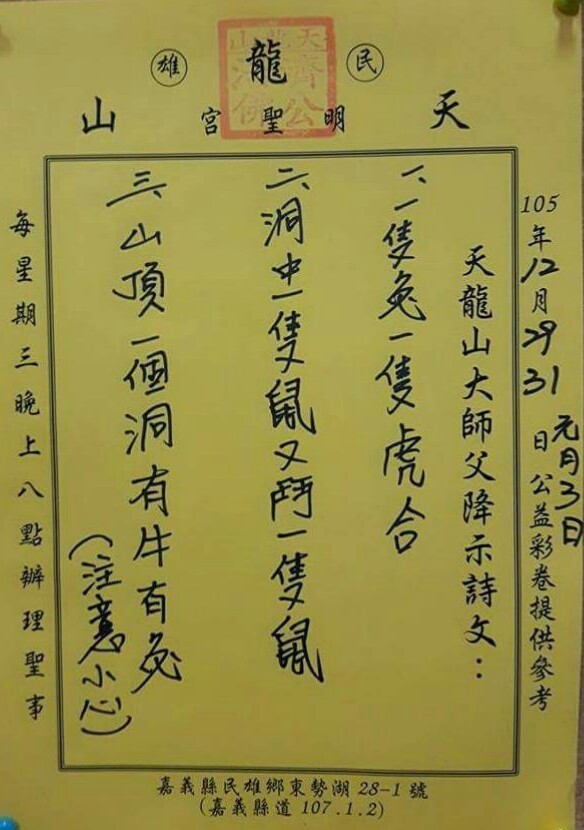 民雄
天龍山
明聖宮
天龍山
濟公
活佛
105年12月29 31日公益彩卷提供參考
元月3日
天龍山大師父降示詩文：
一、一隻兔一隻虎合
二、洞中一隻鼠又鬥一隻鼠
三、山頂一個洞有牛有兔
(注意小心)
每星期三晚上八點辦理聖事
嘉義縣民雄鄉東勢湖 28-1 號
(嘉義縣道 107.1.2)